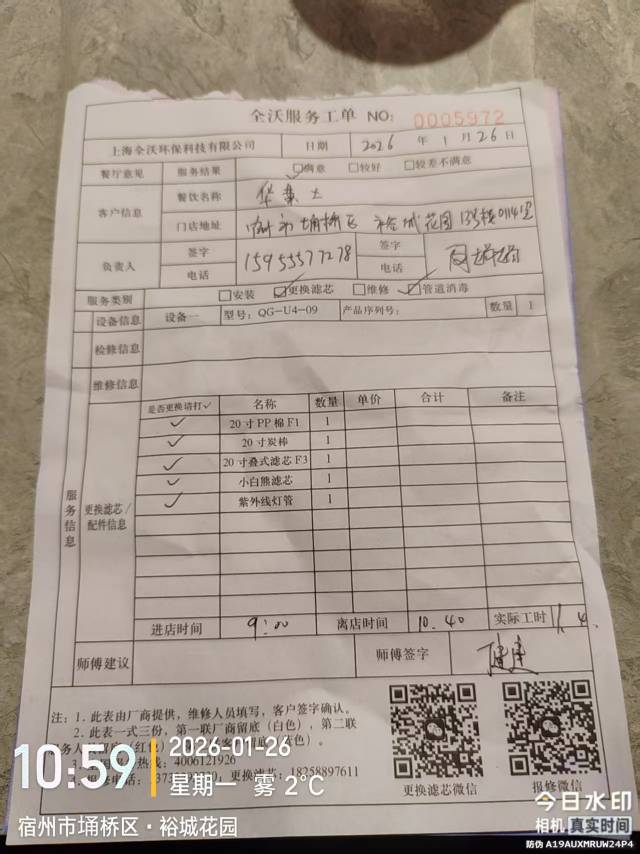 全沃服务工单 NO: 0005972
上海全沃环保科技有限公司 日期 2026 年 1 月 26 日
餐厅意见 服务结果 ☑满意 □较好 □较差不满意
客户信息 餐饮名称 华莱士
门店地址 宿州市埇桥区 裕城花园 13号楼0114室
负责人 签字 签字
电话 15955577278 电话
服务类别 □安装 ☑更换滤芯 □维修 ☑管道消毒
设备信息 设备一 型号: QG-U4-09 产品序列号: 数量 1
检修信息
维修信息
服务信息 更换滤芯/配件信息 是否更换请打✓ 名称 数量 单价 合计 备注
✓ 20寸PP棉F1 1
✓ 20寸炭棒 1
✓ 20寸叠式滤芯F3 1
✓ 小白熊滤芯 1
✓ 紫外线灯管 1
进店时间 9:00 离店时间 10.40 实际工时
师傅建议 师傅签字
注: 1. 此表由厂商提供, 维修人员填写, 客户签字确认。
2. 此表一式三份, 第一联厂商留底 (白色), 第二联
热线: 4006121926
报修电话: 更换滤芯: 18258897611
更换滤芯微信 报修微信
10:59 2026-01-26
星期一 雾 2℃
宿州市埇桥区·裕城花园
今日水印
相机 真实时间
防伪 A19AUXMRUW24P4